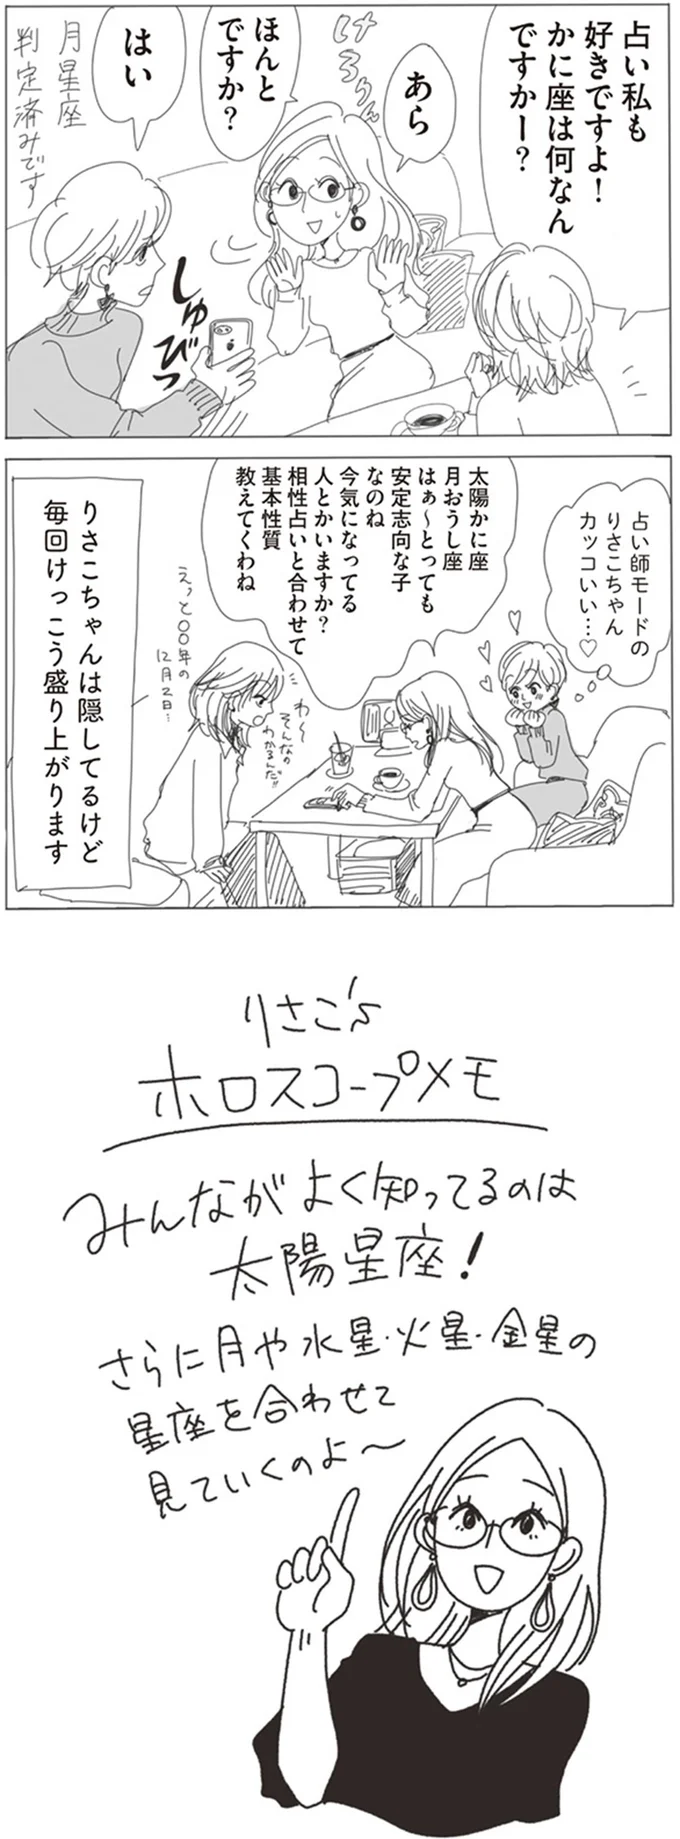 占い私も
好きですよ！
かに座は何なん
ですかー？
あら
けろりん
ほんと
ですか？
はい
月星座
判定済みです
しゅびっ
占い師モードの
りさこちゃん
カッコいい…♡
太陽かに座
月おうし座
はぁ〜とっても
安定志向な子
なのね
今気になってる
人とかいますか？
相性占いと合わせて
基本性質
教えてくわね
わ〜
そんなの
わかるんだ!!
えっと〇〇年の
12月2日…
りさこちゃんは隠してるけど
毎回けっこう盛り上がります
りさこ's
ホロスコープメモ
みんながよく知ってるのは
太陽星座！
さらに月や水星・火星・金星の
星座を合わせて
見ていくのよ〜